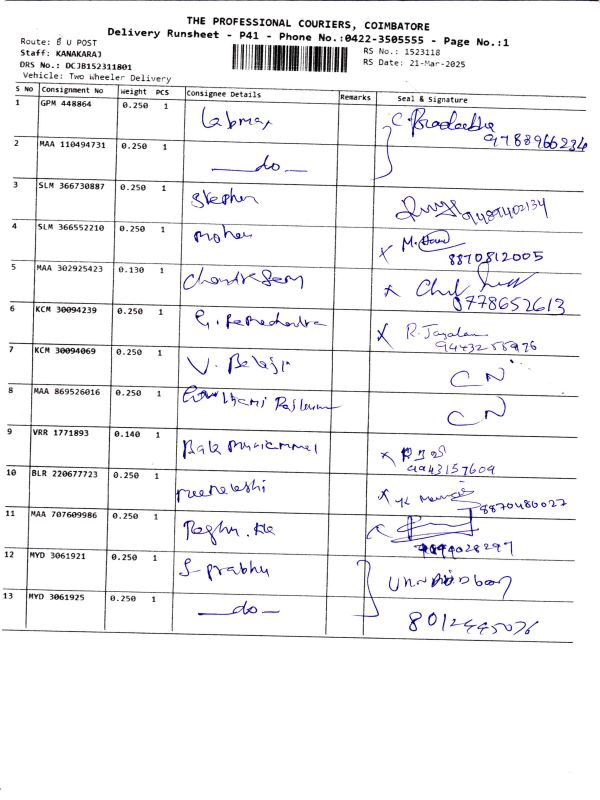 THE PROFESSIONAL COURIERS, COIMBATORE
Delivery Runsheet - P41 - Phone No.:0422-3505555 - Page No.:1
Route: B U POST
RS No.: 1523118
Staff: KANAKARAJ
RS Date: 21-Mar-2025
DRS No.: DCJB152311801
Vehicle: Two Wheeler Delivery
S No Consignment No Weight PCS Consignee Details Remarks Seal & Signature
1 GPM 448864 0.250 1 Labmax
9788966234
2 MAA 110494731 0.250 1 do
3 SLM 366730887 0.250 1 Stephen
9489402134
4 SLM 366552210 0.250 1 Mohan
8870812005
5 MAA 302925423 0.130 1
0778652613
6 KCM 30094239 0.250 1 R. Jayalam
7 KCM 30094069 0.250 1 V. Balaji CN
8 MAA 869526016 0.250 1 CN
9 VRR 1771893 0.140 1
9943157609
10 BLR 220677723 0.250 1 meenakshi
8870480027
11 MAA 707609986 0.250 1
12 MYD 3061921 0.250 1 S-prabhu
13 MYD 3061925 0.250 1 do
8012445076